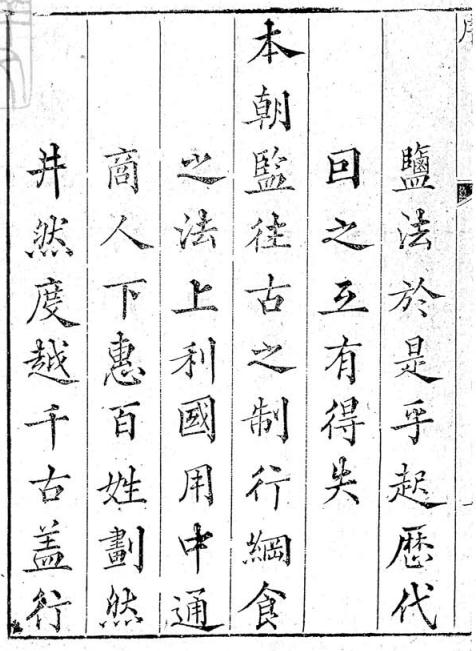 鹽法於是乎起歷代
回之互有得失
本朝監往古之制行綱食
之法上利國用中通
商人下惠百姓劃然
井然度越千古盖行